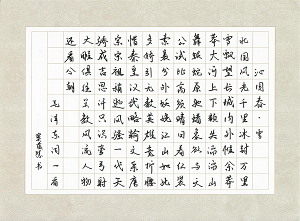 沁园春·雪
北国风光千里冰封万里
雪飘望长城内外惟余莽
莽大河上下顿失滔滔山
舞银蛇原驰蜡象欲与天
公试比高须晴日看红装
素裹分外妖娆江山如此
多娇引无数英雄竞折腰
惜秦皇汉武略输文采唐
宗宋祖稍逊风骚一代天
骄成吉思汗只识弯弓射
大雕俱往矣数风流人物
还看今朝
毛泽东词一首
书